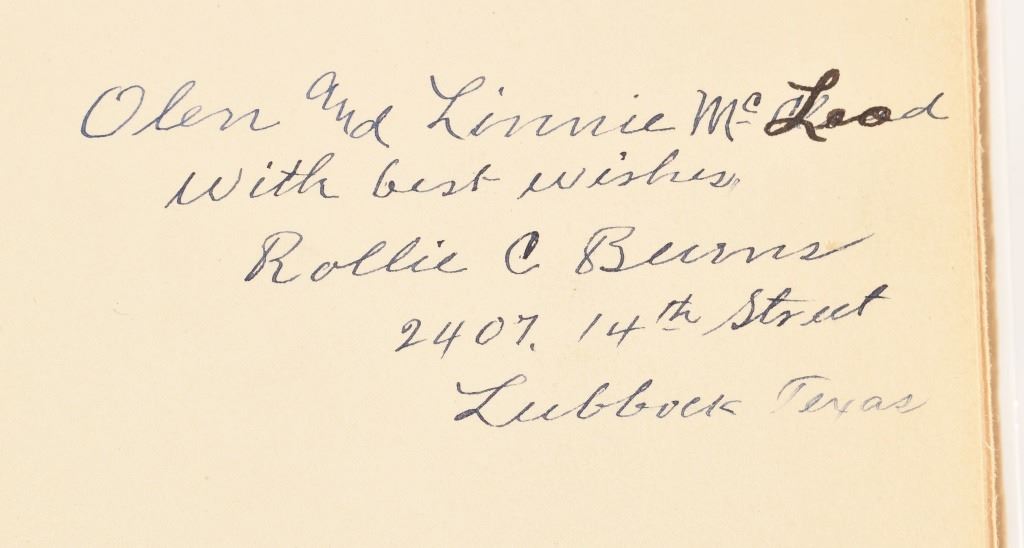 Olen and Linnie McLeod
with best wishes,
Rollie C Burns
2407. 14th Street
Lubbock Texas